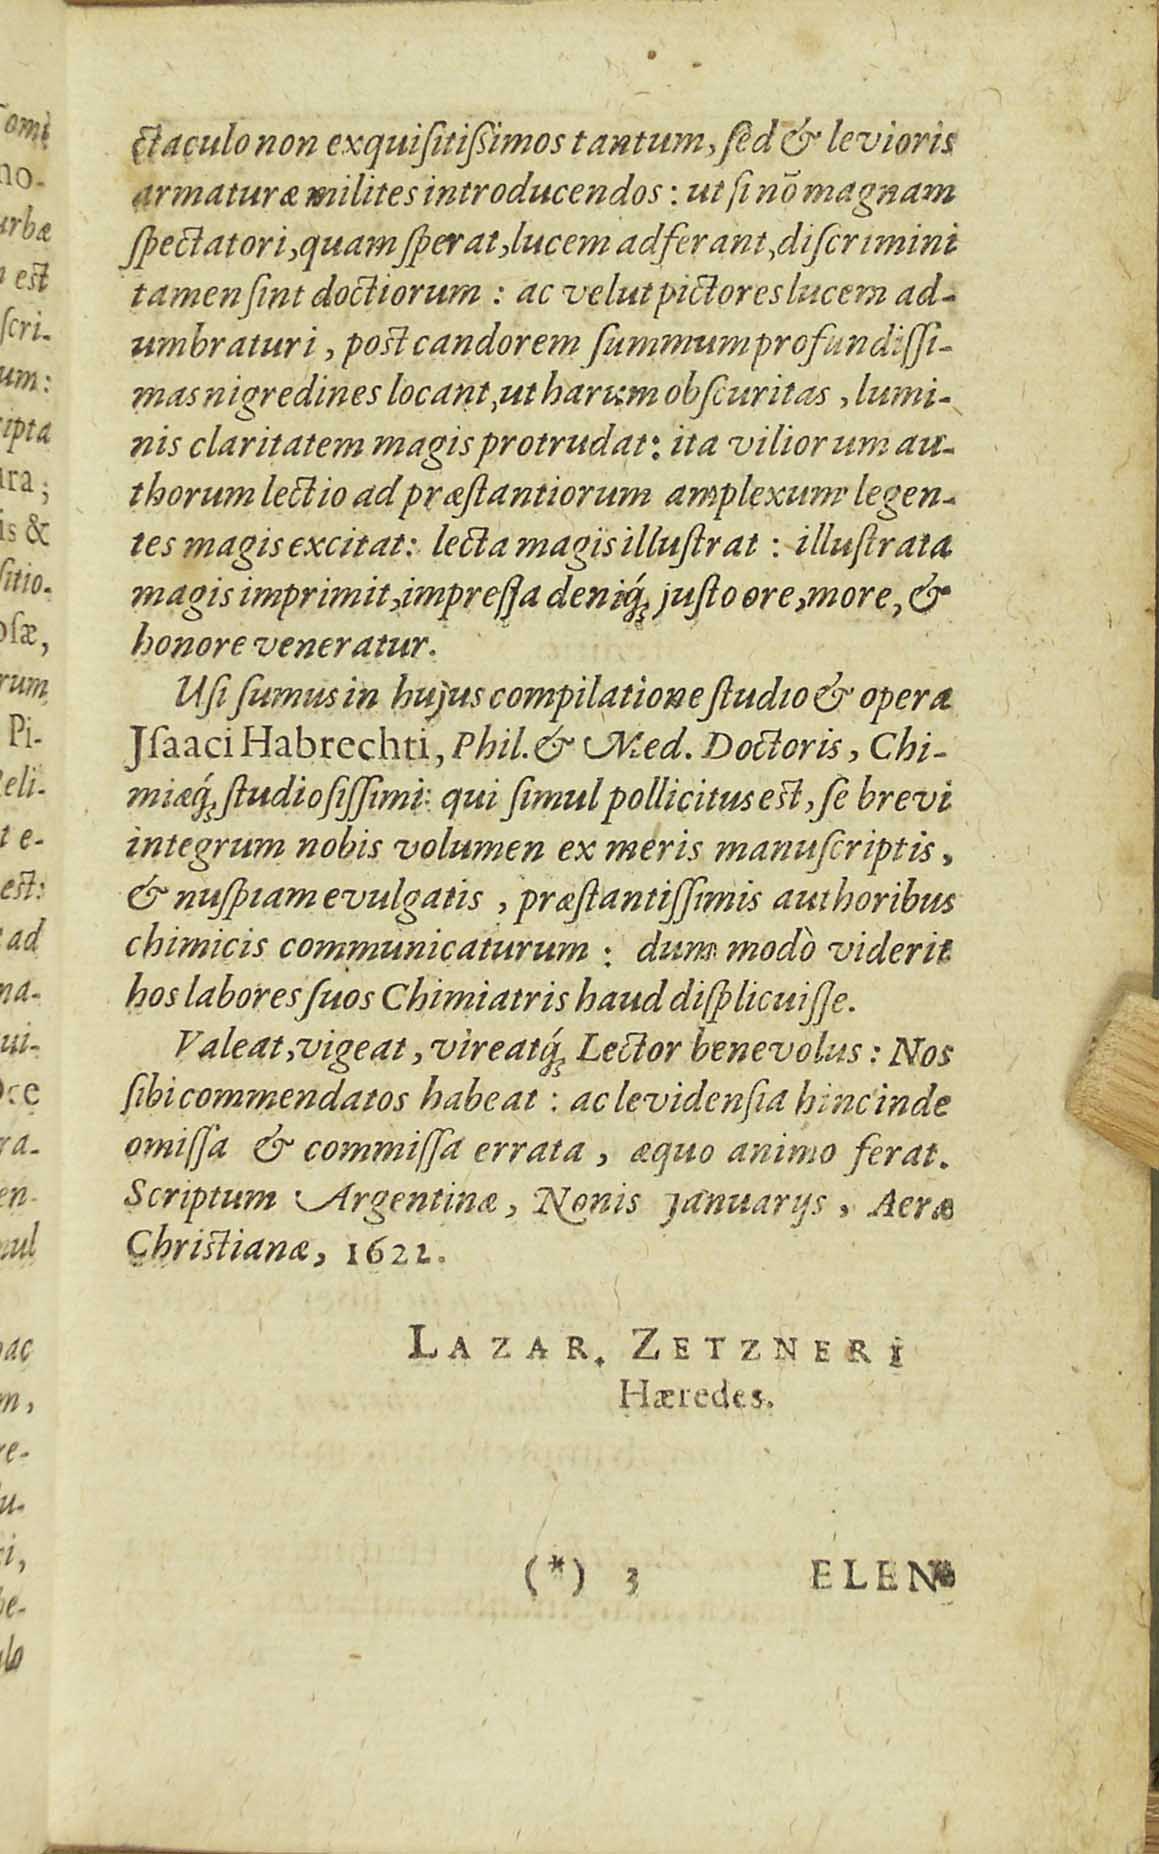 ctaculo non exquisitissimos tantum, sed & levioris
armaturæ milites introducendos: ut si nō magnam
spectatori, quam sperat, lucem adferant, discrimini
tamen sint doctiorum: ac velut pictores lucem ad-
umbraturi, post candorem summum profundissi-
mas nigredines locant, ut harum obscuritas, lumi-
nis claritatem magis protrudat: ita viliorum au-
thorum lectio ad præstantiorum amplexum legen-
tes magis excitat: lecta magis illustrat: illustrata
magis imprimit, impressa deniq́; justo ore, more, &
honore veneratur.
Usi sumus in hujus compilatione studio & opera
Jsaaci Habrechti, Phil. & Med. Doctoris, Chi-
miæq́; studiosissimi: qui simul pollicitus est, se brevi
integrum nobis volumen ex meris manuscriptis,
& nuspiam evulgatis, præstantissimis authoribus
chimicis communicaturum: dum modò viderit
hos labores suos Chimiatris haud displicuisse.
Valeat, vigeat, vireatq́; Lector benevolus: Nos
sibi commendatos habeat: ac levidensia hinc inde
omissa & commissa errata, æquo animo ferat.
Scriptum Argentinæ, Nonis Januarijs, Aeræ
Christianæ, 1622.
LAZAR. ZETZNERI
Hæredes.
(*) 3 ELEN